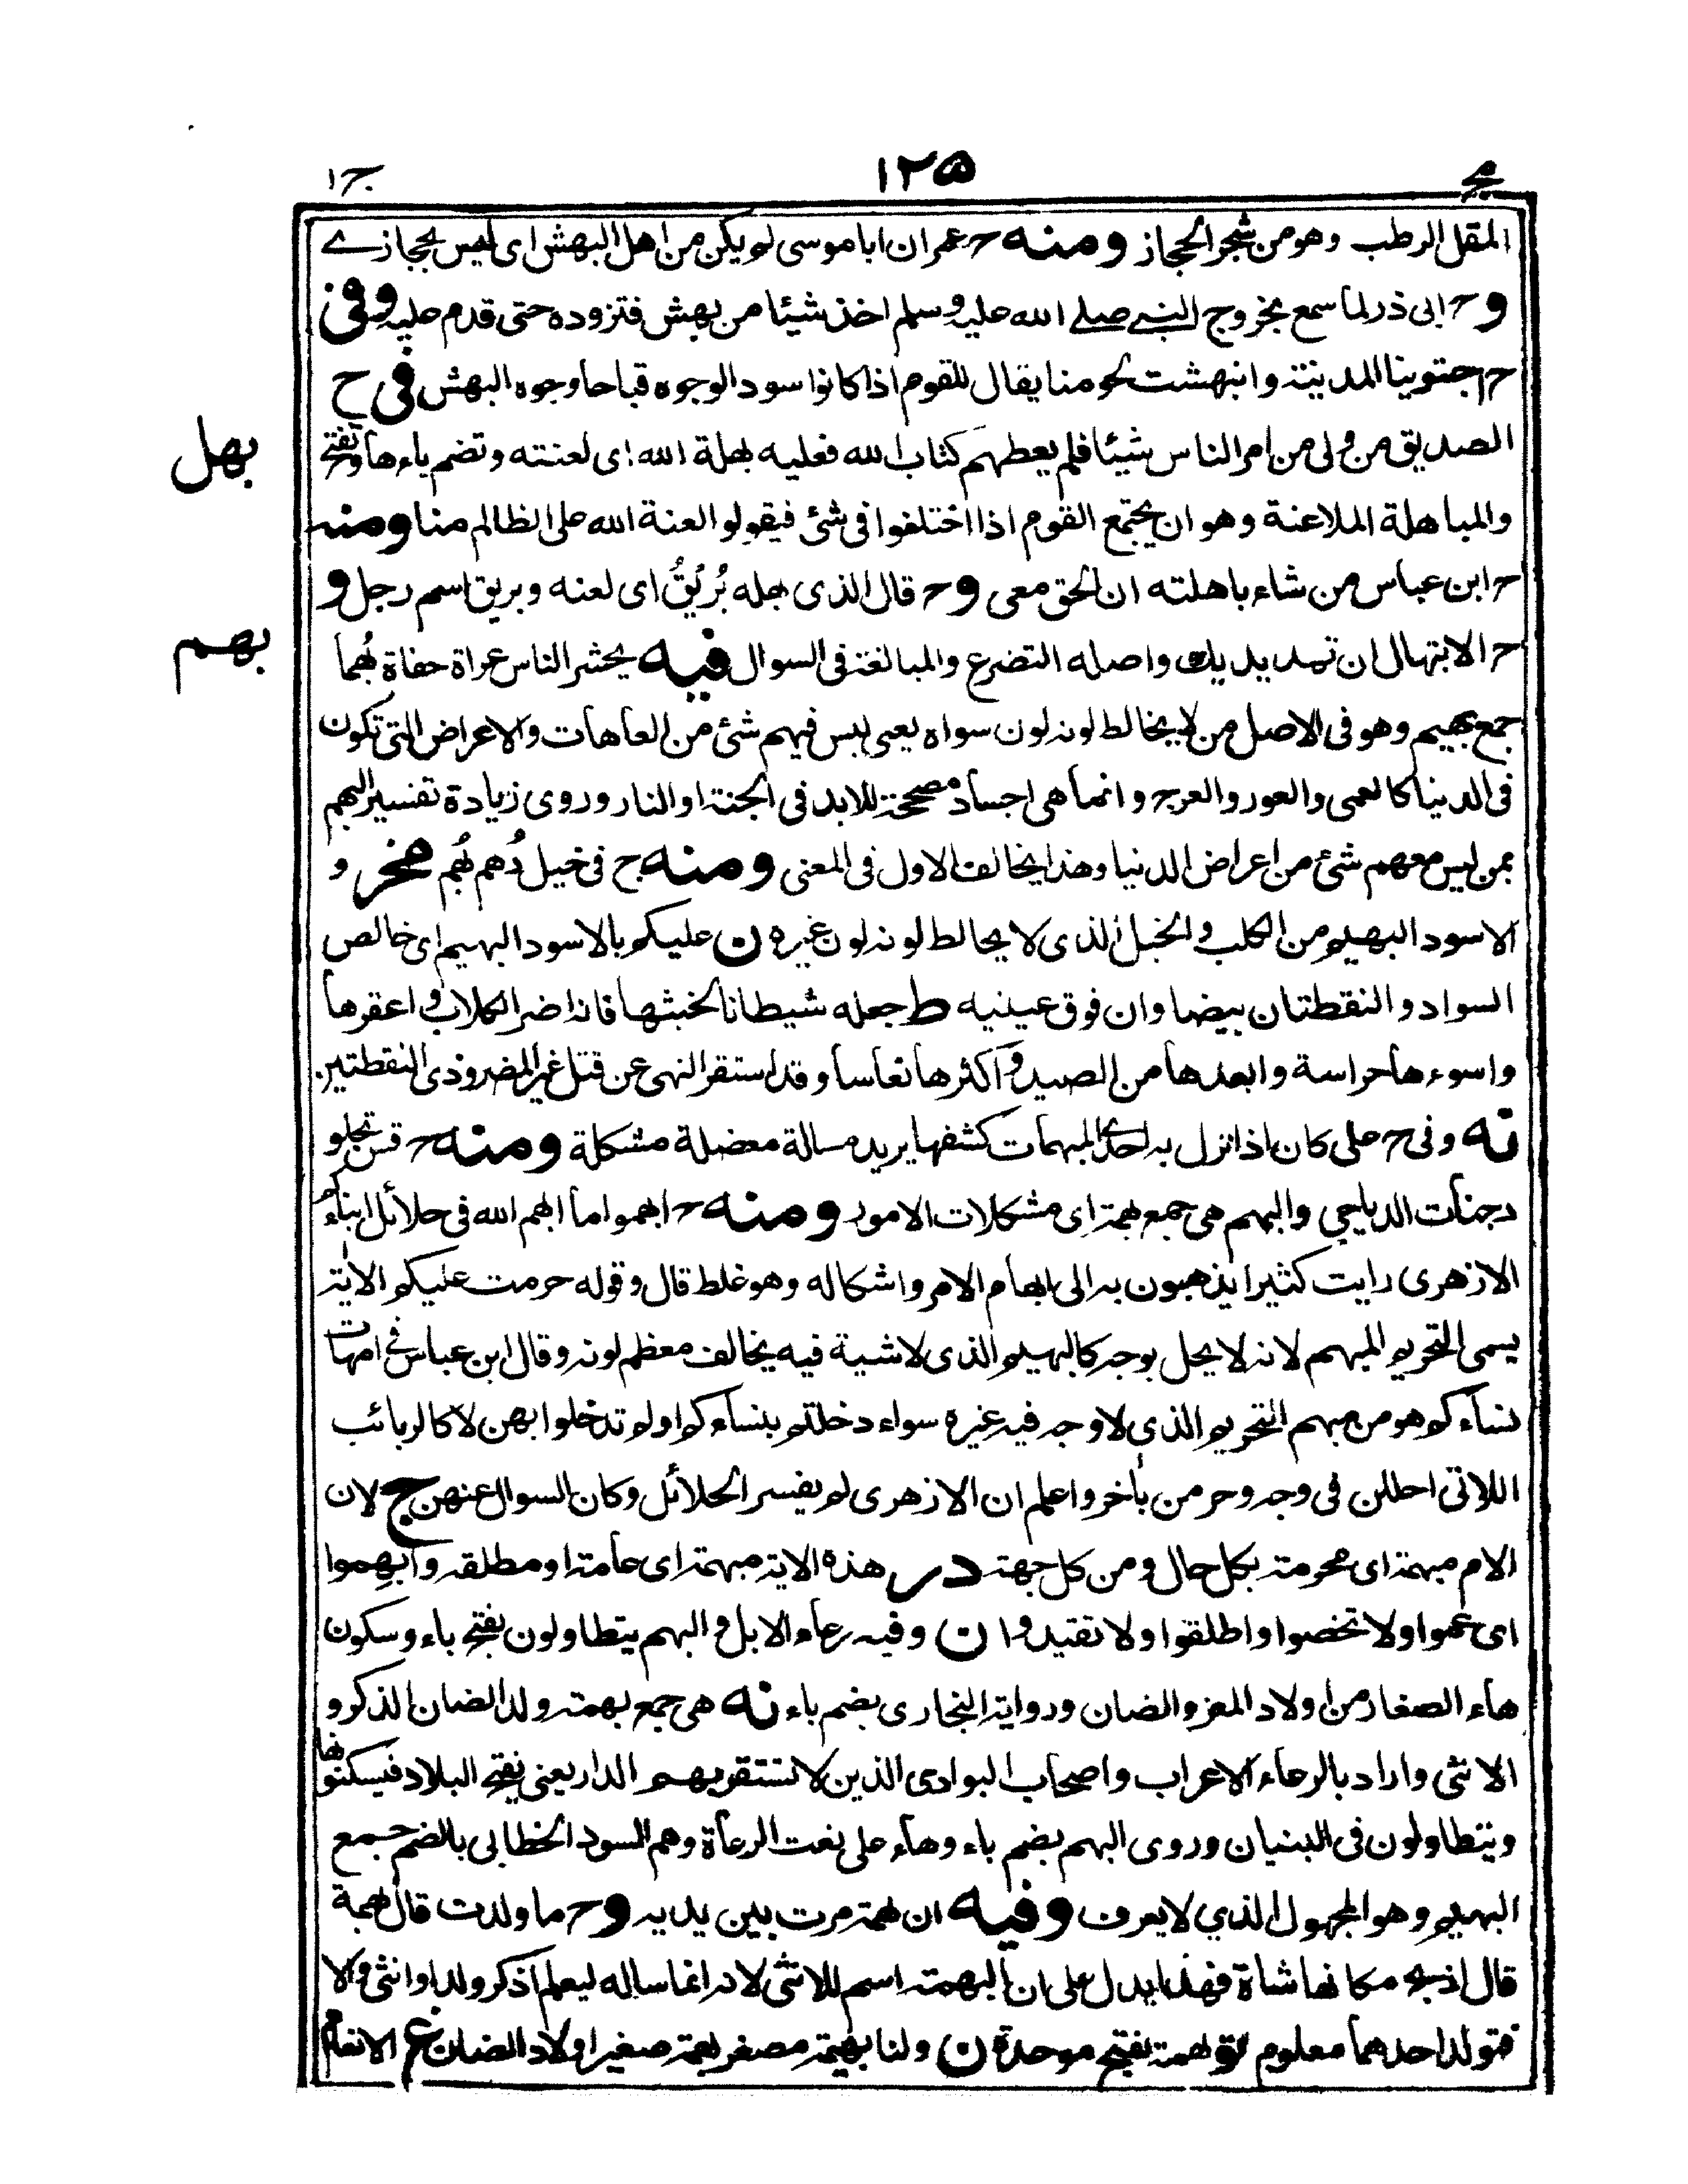 مج ١٢٥ ج١
المقل الرطب وهو من شجر الحجاز ومنه ح عمر ان ابا موسى لم يكن من اهل البهش اى ليس بحجازے
و ح ابى ذر لما سمع بخروج النبے صلے الله عليه وسلم اخذ شيئا من بهش فتزوده حتى قدم عليه وفى
ح اجتوينا المدينة وانبهشت لحومنا يقال للقوم اذا كانوا سود الوجوه قباحا وجوه البهش فى ح
بهل
الصديق من ولى من امر الناس شيئا فلم يعطهم كتاب الله فعليه بهلة الله اى لعنته وتضم باءها وتفتح
والمباهلة الملاعنة وهو ان يجتمع القوم اذا اختلفوا فى شئ فيقولوا لعنة الله على الظالم منا ومنه
ح ابن عباس من شاء باهلته ان الحق معى و ح قال الذى بهله بُرَيْقٌ اى لعنه وبريق اسم رجل و
بهم
ح الابتهال ان تمد يديك واصله التضرع والمبالغة فى السوال فيه يحشر الناس عراة حفاة بُهما
جمع بهيم وهو فى الاصل من لا يخالط لونه لون سواه يعنى ليس فيهم شئ من العاهات والاعراض التى تكون
فى الدنيا كالعمى والعور والعرج وانما هى اجساد مصححة للابد فى الجنة او النار وروى زيادة تفسير البهم
بمن ليس معهم شئ من اعراض الدنيا وهذا يخالف الاول فى المعنى ومنه ح فى خيل دُهم بُهم و
الاسود البهيم من الكلب والخيل الذى لا يخالط لونه لون غيره ن عليكم بالاسود البهيم اى خالص
السواد والنقطتان بيضاوان فوق عينيه ط جعله شيطانا لخبثها فانه اضر الكلاب واعقرها
واسوءها حراسة وابعدها من الصيد واكثرها نعاسا وقد استقر النهى عن قتل غير المضر وذى النقطتين
نه وفى ح على كان اذا نزل به احدى المبهمات كشفها يريد مسالة معضلة مشكلة ومنه ح قس تجلو
دجنات الدياجي والبهم هى جمع بهمة اى مشكلات الامور ومنه ح ابهموا ما ابهم الله فى حلائل ابنائكم
الازهرى رايت كثيرا يذهبون به الى ابهام الامر واشكاله وهو غلط قال وقوله حرمت عليكم الاية
يسمى التحريم المبهم لانه لا يحل بوجه كالبهيم الذى لا شية فيه يخالف معظم لونه وقال ابن عباس فى امهات
نساءكم هو من مبهم التحريم الذى لا وجه فيه غيره سواء دخلتم بنساءكم او لم تدخلوا بهن لا كالربائب
اللاتى احللن فى وجه وحرمن بآخر واعلم ان الازهرى لم يفسر الحلائل وكان السوال عنهن ج لان
الام مبهمة اى محرمة بكل حال ومن كل جهة در هذه الاية مبهمة اى عامة او مطلقه وابهموا
اى عموا ولا تخصوا واطلقوا ولا تقيدوا ن وفيه رعاء الابل والبهم يتطاولون بفتح باء وسكون
هاء الصغار من اولاد المعز والضان ورواية البخارى بضم باء نه هى جمع بهمة ولد الضان الذكر و
الانثى واراد بالرعاء الاعراب واصحاب البوادى الذين لا تستقر بهم الدار يعنى يفتح البلاد فيسكنونها
ويتطاولون فى البنيان وروى البهم بضم باء وهاء على نعت الرعاة وهم السود الخطابى بالضم جمع
البهيم وهو المجهول الذي لا يعرف وفيه ان بهمة مرت بين يديه و ح ما ولدت قال بهمة
قال اذبح مكانها شاة فهذا يدل على ان البهمة اسم للانثى لانه انما ساله ليعلم اذكر ولد او انثى والا
فتولد احدهما معلوم تو بهمة بفتح موحدة ن ولنا بهيمة مصغر بهمة صغير اولاد الضان غ الانعام